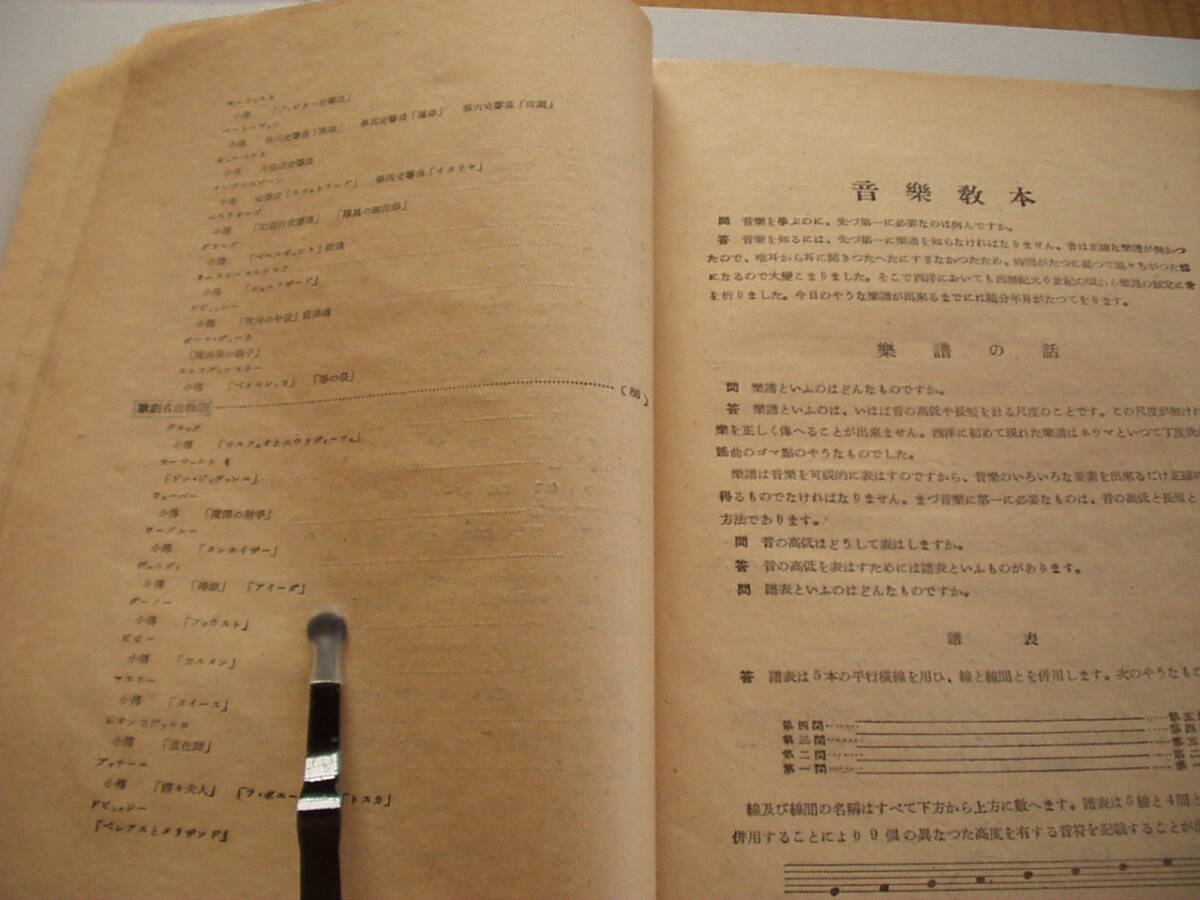 モーツァルト
小傳 「ジュピター交響曲」
ベートーヴェン
小傳 第三交響曲「英雄」 第五交響曲「運命」 第六交響曲「田園」
シューベルト
小傳 未完成交響曲
メンデルスゾーン
小傳 交響曲「スコットランド」 第四交響曲「イタリヤ」
ベルリオーズ
小傳 「幻想的交響曲」 「羅馬の謝肉祭」
グリーグ
小傳 「ペエルギュント」組曲
リームスキーコルサコフ
小傳 「シェエラザード」
ドビュッシー
小傳 「牧神の午後」前奏曲
ポール・デューカ
「魔法使の弟子」
ストラヴィンスキー
小傳 「ペトルシュカ」 「春の祭」
歌劇名曲物語 (86)
グルック
小傳 「オルフェオとエウリディーツェ」
モーツァルト
「ドン・ジョヴァンニ」
ウェーバー
小傳 「魔彈の射手」
ワーグナー
小傳 「タンホイザー」
ヴェルディ
小傳 「椿姫」 「アイーダ」
グーノー
小傳 「ファウスト」
ビゼー
小傳 「カルメン」
マスネー
小傳 「タイース」
レオンカヴァルロ
小傳 「道化師」
プッチーニ
小傳 「蝶々夫人」 「ラ・ボエー 「トスカ」
ドビュッシー
「ペレアスとメリザンド」
音樂教本
問 音樂を學ぶのに、先づ第一に必要なのは何んですか。
答 音樂を知るには、先づ第一に樂譜を知らなければなりません。昔は正確な樂譜が無かつ
たので、唯耳から耳に聞きつたへたにすぎなかつたため、時間がたつに從つて追々ちがつた
になるので大變こまりました。そこで西洋においても西曆紀元6世紀の頃から樂譜の制定に
を祈りました。今日のやうな樂譜が出來るまでには隨分年月がたつてをります。
樂譜の話
問 樂譜といふのはどんなものですか。
答 樂譜といふのは、いはば音の高低や長短を計る尺度のことです。この尺度が無けれ
樂を正しく傳へることが出來ません。西洋に初めて現れた樂譜はネウマといつて丁度
謠曲のゴマ點のやうなものでした。
樂譜は音樂を可視的に表はすのですから、音樂のいろいろな要素を出來るだけ正確に
得るものでなければなりません。まづ音樂に第一に必要なものは、音の高低と長短と
方法であります。
問 音の高低はどうして表はしますか。
答 音の高低を表はすためには譜表といふものがあります。
問 譜表といふのはどんなものですか。
譜表
答 譜表は5本の平行橫線を用ひ、線と線間とを併用します。次のやうなもの
第四間 第五
第三間 第四
第二間 第三
第一間 第二
第一
線及び線間の名稱はすべて下方から上方に數へます。譜表は5線と4間と
併用することにより9個の異なつた高度を有する音符を記載することが